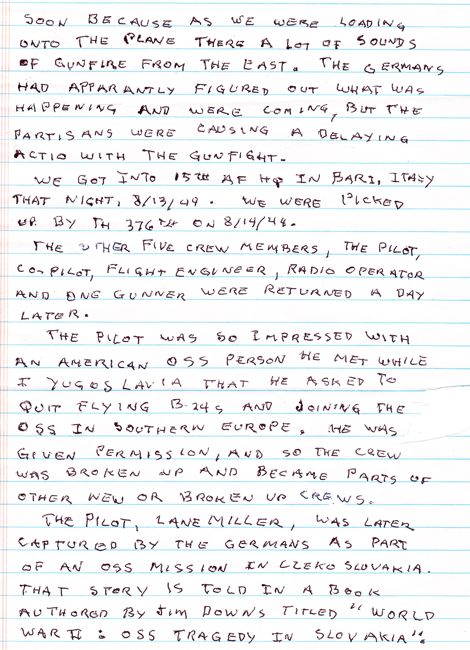 SOON BECAUSE AS WE WERE LOADING
ONTO THE PLANE THERE A LOT OF SOUNDS
OF GUNFIRE FROM THE EAST. THE GERMANS
HAD APPARANTLY FIGURED OUT WHAT WAS
HAPPENING AND WERE COMING, BUT THE
PARTISANS WERE CAUSING A DELAYING
ACTIO WITH THE GUNFIGHT.
WE GOT INTO 15TH AF HQ IN BARI, ITALY
THAT NIGHT, 8/13/44. WE WERE PICKED
UP BY TH 376TH ON 8/14/44.
THE OTHER FIVE CREW MEMBERS, THE PILOT,
CO-PILOT, FLIGHT ENGUNEER, RADIO OPERATOR
AND ONE GUNNER WERE RETURNED A DAY
LATER.
THE PILOT WAS SO IMPRESSED WITH
AN AMERICAN OSS PERSON HE MET WHILE
I YUGOSLAVIA THAT HE ASKED TO
QUIT FLYING B-24S AND JOINING THE
OSS IN SOUTHERN EUROPE. HE WAS
GIVEN PERMISSION, AND SO THE CREW
WAS BROKEN UP AND BECAME PARTS OF
OTHER NEW OR BROKEN UP CREWS.
THE PILOT, LANE MILLER, WAS LATER
CAPTURED BY THE GERMANS AS PART
OF AN OSS MISSION IN CZEKOSLOVAKIA.
THAT STORY IS TOLD IN A BOOK
AUTHORED BY JIM DOWNS TITLED "WORLD
WAR II: OSS TRAGEDY IN SLOVAKIA".